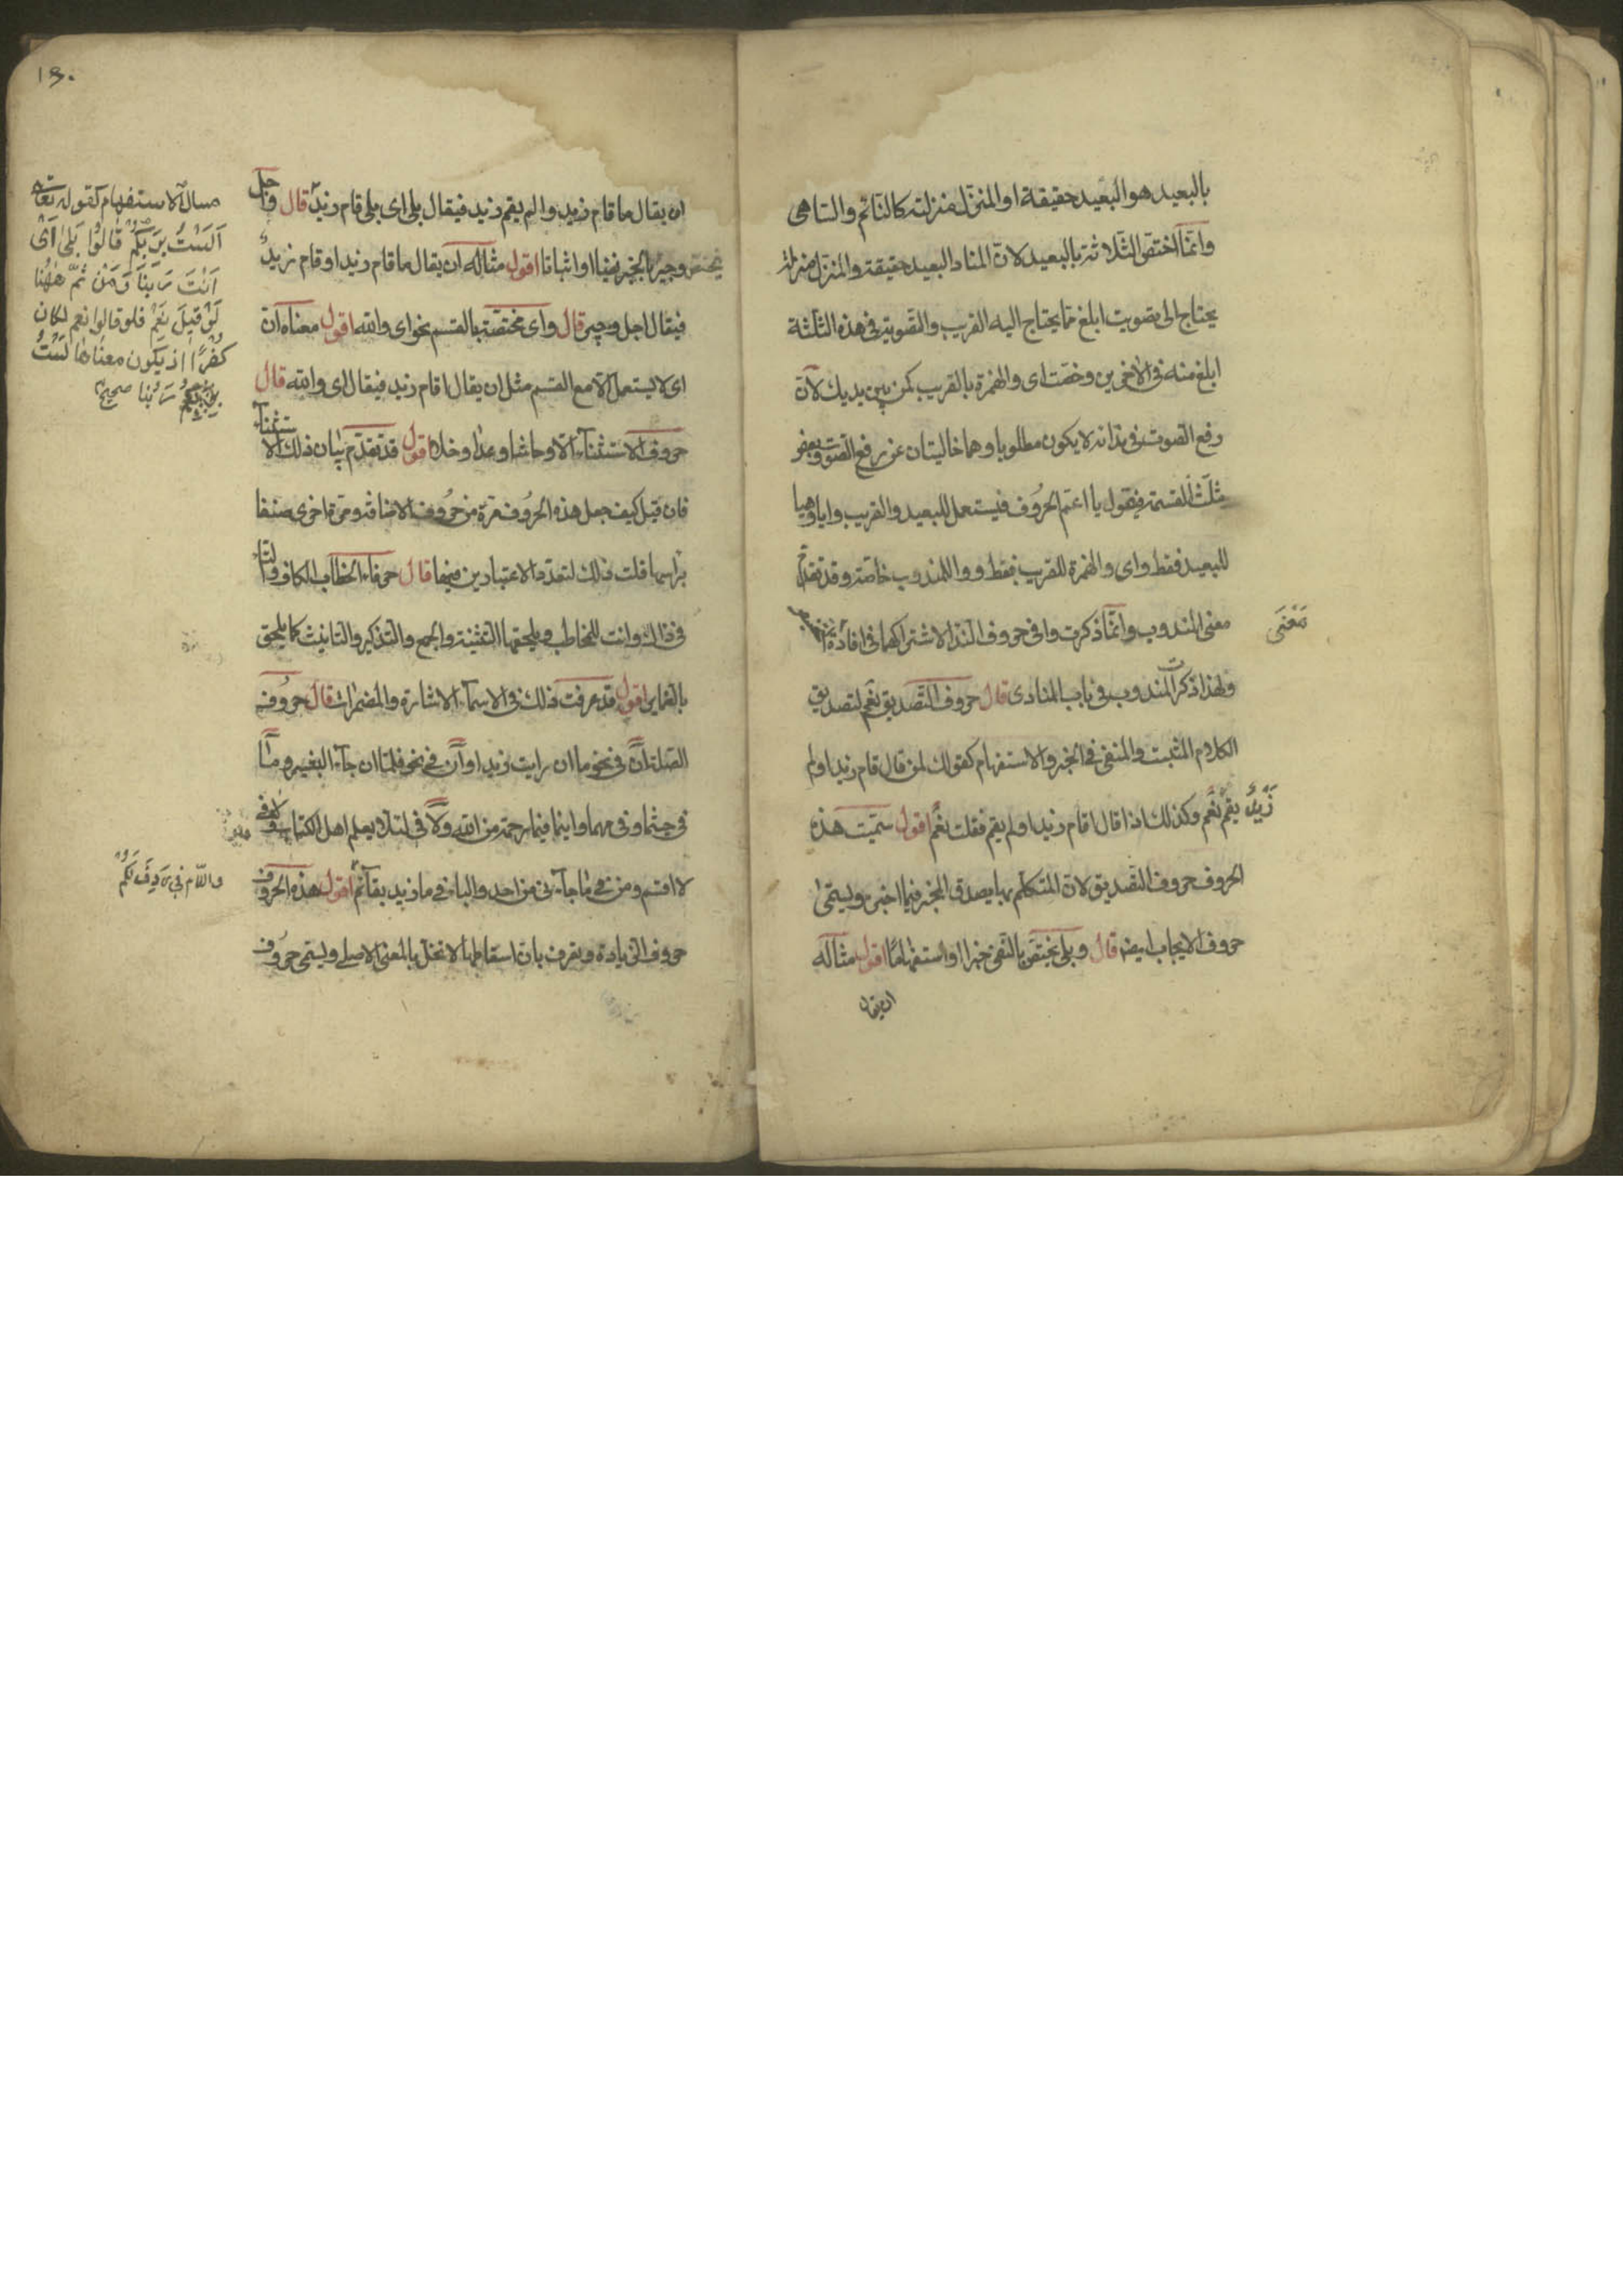 بالبعيد هو البعيد حقيقة او المنزل منزلته كالنائم والساهى
وانما اختص الثلاثة بالبعيد لان المناد البعيد حقيقة والمنزل منزلته
يحتاج الى تصويت ابلغ مما يحتاج اليه القريب والتصويت فى هذه الثلثة
ابلغ منه فى الاخرين وخصت اى والهمزة بالقريب كمن بين يديك لان
رفع الصوت فى ندائه لا يكون مطلوبا وهما خاليتان عن رفع الصوت وبعضهم
يثلث القسمة فيقول يا اعم الحروف فيستعمل للبعيد والقريب وايا وهيا
للبعيد فقط واى والهمزة للقريب فقط ووا للمندوب خاصة وقد تقدم
معنى المندوب وانما ذكرت وا فى حروف الندا لاشتراكهما فى افادة
معنى
ولهذا ذكر المندوب فى باب المنادى قال حروف التصديق نعم لتصديق
الكلام المثبت والمنفى فى الخبر والاستفهام كقولك لمن قال قام زيد اولم
يقم نعم وكذلك اذا قال اقام زيد اولم يقم فقلت نعم اقول سميت هذه
زيد
الحروف حروف التصديق لان المتكلم بها يصدق المخبر فيما اخبره ويسمى
حروف الايجاب ايضا قال وبلى تختص بالنفى خبرا او استفهاما اقول مثاله
ان يقال
١٣٠
ان يقال ما قام زيد والم يقم زيد فيقال بلى اى بلى قام زيد قال واجل
يختص وجير بالخبر نفيا او اثباتا اقول مثاله ان يقال ما قام زيد او قام زيد
فيقال اجل وجير قال واى مختصة بالقسم نحو اى والله اقول معناه ان
اى لا يستعمل الا مع القسم مثل ان يقال اقام زيد فيقال اى والله قال
حروف الاستثناء الا وحاشا وعدا وخلا اقول قد تقدم بيان ذلك الاستثناء
فان قيل كيف جعل هذه الحروف مرة من حروف الاضافة ومرة اخرى صنفا
براسها قلت ذلك لتعدد الاعتبارين فيها قال حرفا الخطاب الكاف والتاء
فى ذاك وانت للمخاطب ويلحقهما التثنية والجمع والتذكير والتانيث كما يلحق
بالضماير اقول قد عرفت ذلك فى الاسماء الاشارة والمضمرات قال حروف
الصلة ان فى نحو ما ان رايت زيد او ان فى نحو فلما ان جاء البشير وما
فى حيثما وفى مهما واينما فبما رحمة من الله ولا فى لئلا يعلم اهل الكتاب وفى
لا اقسم ومن فى ما جاءنى من احد والباء فى ما زيد بقائم اقول هذه الحروف
حروف الزيادة ويعرف بان اسقاطها لا تخل بالمعنى الاصلى ويسمى حروف
مسال الاستفهام كقوله تعالى
الست بربكم قالوا بلى اى
انت ربنا ومن ثم ههنا
لو قيل نعم فلو قالوا نعم لكان
كفرا اذ يكون معناها لست
ربنا صحيح
واللام فى ردف لكم